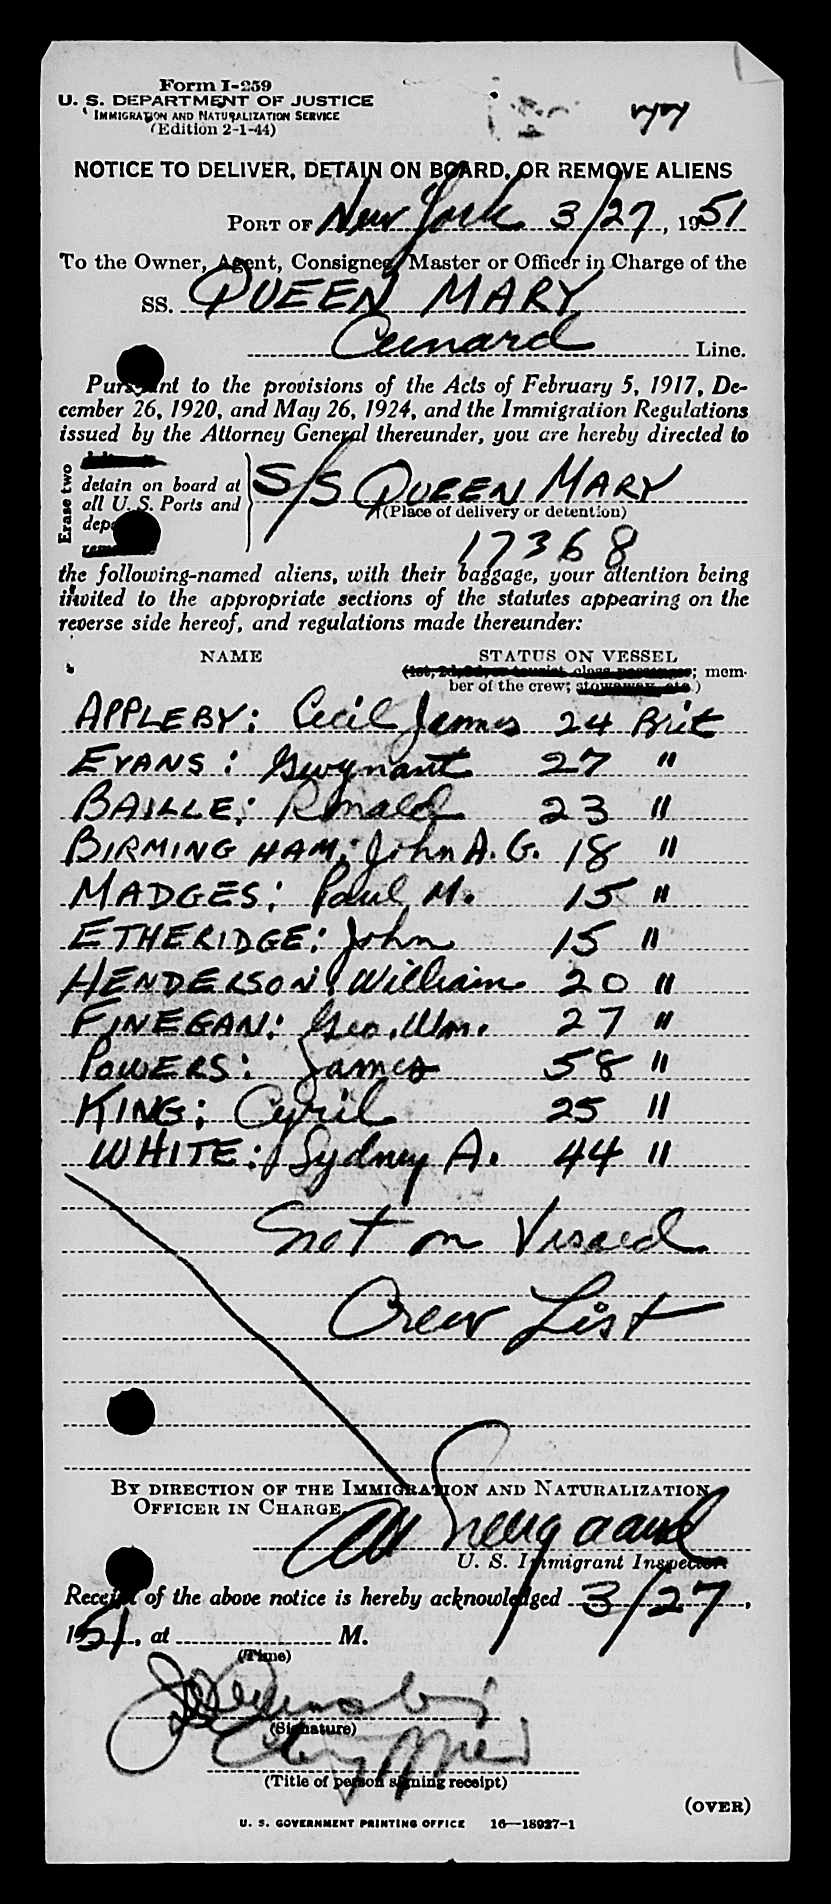 Form I-259
U. S. DEPARTMENT OF JUSTICE
IMMIGRATION AND NATURALIZATION SERVICE
(Edition 2-1-44)
NOTICE TO DELIVER, DETAIN ON BOARD, OR REMOVE ALIENS
PORT OF New York 3/27, 1951
To the Owner, Agent, Consignee, Master or Officer in Charge of the
SS. QUEEN MARY
Cunard Line.
Pursuant to the provisions of the Acts of February 5, 1917, De-
cember 26, 1920, and May 26, 1924, and the Immigration Regulations
issued by the Attorney General thereunder, you are hereby directed to
Erase two
detain on board at
all U. S. Ports and
S/S QUEEN MARY
(Place of delivery or detention)
17368
the following-named aliens, with their baggage, your attention being
invited to the appropriate sections of the statutes appearing on the
reverse side hereof, and regulations made thereunder:
NAME STATUS ON VESSEL
; mem-
ber of the crew;
APPLEBY: Cecil James 24 Brit
EVANS: Gwynant 27 "
BAILLE: Ronald 23 "
BIRMINGHAM: John A. G. 18 "
MADGES: Paul M. 15 "
ETHERIDGE: John 15 "
HENDERSON: William 20 "
FINEGAN: Geo. Wm. 27 "
POWERS: James 58 "
KING: Cyril 25 "
WHITE: Sydney A. 44 "
not on Visaed
Crew List
BY DIRECTION OF THE IMMIGRATION AND NATURALIZATION
OFFICER IN CHARGE.
U. S. Immigrant Inspector
Receipt of the above notice is hereby acknowledged 3/27,
1951, at M.
(Time)
(Signature)
(Title of person signing receipt)
(OVER)
U. S. GOVERNMENT PRINTING OFFICE 16—18927-1